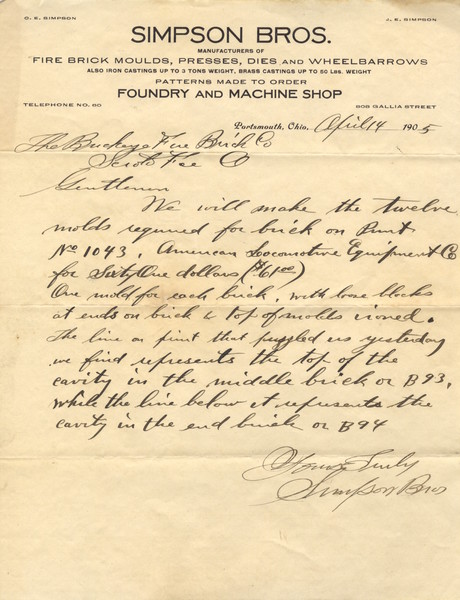 O. E. SIMPSON J. E. SIMPSON
SIMPSON BROS.
MANUFACTURERS OF
FIRE BRICK MOULDS, PRESSES, DIES AND WHEELBARROWS
ALSO IRON CASTINGS UP TO 3 TONS WEIGHT, BRASS CASTINGS UP TO 60 Lbs. WEIGHT
PATTERNS MADE TO ORDER
FOUNDRY AND MACHINE SHOP
TELEPHONE NO. 80 GALLIA STREET
Portsmouth, Ohio, April 14 1905
The Buckeye Fire Brick Co
O
Gentlemen
We will make the twelve
molds required for brick on Print
No 1043, American Locomotive Equipment Co
for Sixty One dollars ($61.00)
One mold for each brick, with loose blocks
at ends on brick & top of molds ironed.
The line on print that puzzled us yesterday
we find represents the top of the
cavity in the middle brick or B93,
while the line below it represents the
cavity in the end brick or B94
Yours Truly
Simpson Bros